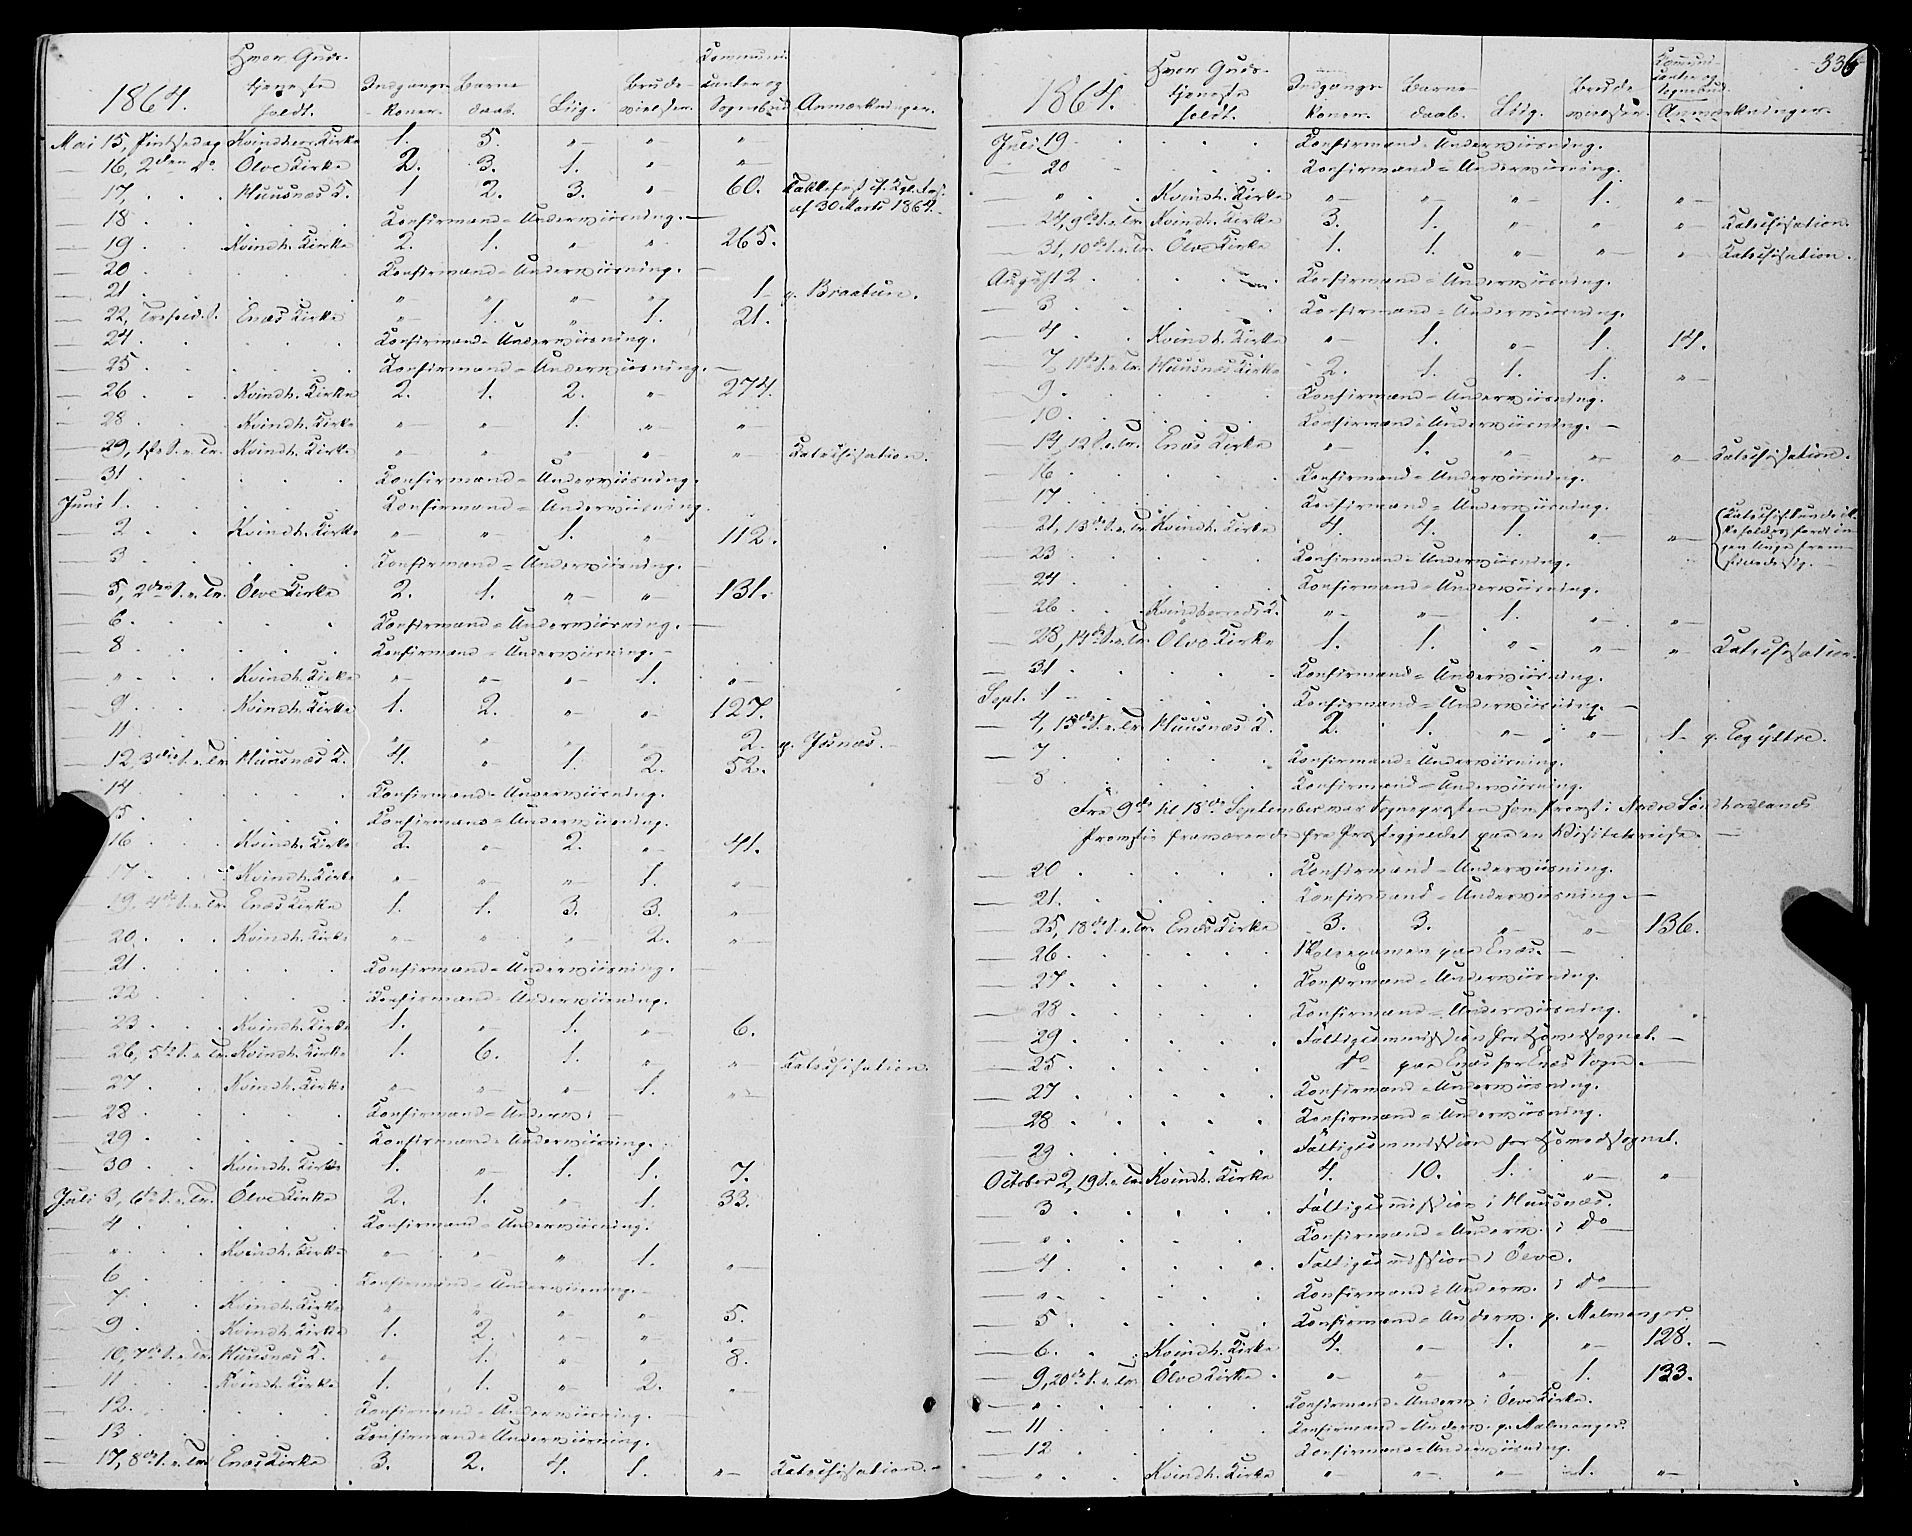 1864. Hvor Gudstjeneste holdt. Indgangs-Koner. Barne daab. Liig. Brude-vielser. Communi-canter og Sognebud Anmærkninger.
Mai 15, Pintsedag Kvindherr. Kirke 1. 5. " " "
— 16, 2den do Ølve Kirke 2. 3. 1. " "
— 17, . . Huusnæs K. 1 2. 3. " 60. Takkefest if. Kgl. Res. af 30 Marts 1864.
— 18 . . . Confirmand-Underviisning.
— 19 . . Kvindh. Kirke 2. 1. " " 265.
— 20 . . . Confirmand-Underviisning.
— 21 . . . " " " " 1 p. Braatun.
— 22, Trefold. S. Enæs Kirke " 1. " 1. 21.
— 24 . . . Confirmand-Underviisning.
— 25 . . . Confirmand-Underviisning.
— 26 . . Kvindh. Kirke 2. 1. 2. " 274.
— 28 . . Kvindh. Kirke " " 1. " "
— 29, 1ste S. e. Tr. Kvindh. Kirke " " " " " Catechisation.
— 31 . . . Confirmand-Underviisning.
Juni 1. . . . Confirmand-Underviisning.
— 2 . . Kvindh. Kirke " " 1. " 112.
— 3 . . . Confirmand-Underviisning.
— 5, 2den S. e. Tr. Ølve Kirke 2. 1. " " 131.
— 6 . . . Confirmand-Underviisning.
— 8 . . . Confirmand-Underviisning.
— " . . Kvindh. Kirke " " " 1. "
— 9 . . Kvindh. Kirke 1. 2. " " 127.
— 11 . . . " " " " 2. p. Josnæs.
— 12, 3die S. e. Tr. Huusnæs K. 4. " 1. 2. 52.
— 14 . . . Confirmand-Underviisning.
— 15 . . . Confirmand-Underviisning.
— 16 . . Kvindh. Kirke 2. " 2. " 41.
— 17 . . Kvindh. Kirke " " " 1. "
— 19, 4de S. e. Tr. Enæs Kirke 1. 1. 3. 3. "
— 20 . . Kvindh. Kirke " " " 2. "
— 21 . . . Confirmand-Underviisning.
— 22 . . . Confirmand-Underviisning.
— 23 . . Kvindh. Kirke 1. " 1. " 6.
— 26, 5te S. e. Tr. Kvindh. Kirke 1. 6. 1. " " Catechisation.
— 27 . . Kvindh. Kirke " " " 1. "
— 28 . . . Confirmand-Underv.
— 29 . . . Confirmand-Underviisning.
— 30 . . Kvindh. Kirke 1. " 1. 1. 7.
Juli 3, 6te S. e. Tr. Ølve Kirke 2. 1. " 1. 33.
— 4 . . . Confirmand-Underviisning.
— " . . Kvindh. Kirke " " " 1. "
— 6 . . . Confirmand-Underviisning.
— 7 . . Kvindh. Kirke " " " " 5.
— 9 . . Kvindh. Kirke 1. 2. " " "
— 10, 7de S. e. Tr. Huusnæs K. " 1. " " 8.
— 11 . . Kvindh. Kirke 1. 1. " 2. "
— 12. . . . Confirmand-Underviisning.
— 13 . . . Confirmand-Underviisning.
— 17, 8de S. e. Tr. Enæs Kirke 3. 2. 4. 1. " Catechisation.
336
1864. Hvor Gudstjeneste holdt. Indgangs-Koner. Barne-daab. Liig. Brude-vielser. Communi-canter og Sognebud. Anmærkninger.
Juli 19 . . . Confirmand-Underviisning.
— 20 . . . Confirmand-Underviisning.
— " . . Kvindh. Kirke " " " 1. "
— 24, 9de S. e. Tr. Kvindh. Kirke 3. 1. " " " Catechisation.
— 31, 10de S. e. Tr. Ølve Kirke 1. 1. " " " Catechisation.
August 2 . . . Confirmand-Underviisning.
— 3 . . . Confirmand-Underviisning.
— 4 . . Kvindh. Kirke " 1. " 1. 14.
— 7, 11te S. e. Tr. Huusnæs Kirke 2. 1. 1. 1. "
— 9 . . . Confirmand-Underviisning.
— 10. . . . Confirmand-Underviisning.
— 14, 12 S. e. Tr. Enæs Kirke " 1. " " " Catechisation.
— 16 . . . Confirmand-Underviisning.
— 17 . . . Confirmand-Underviisning.
— 21, 13de S. e. Tr. Kvindh. Kirke 4. 4. 1. " " Catechis. kunde ik-ke holdes, fordi in-gen Unge frem-stillede sig.
— 23 . . . Confirmand-Underviisning.
— 24 . . . Confirmand-Underviisning.
— 26 . . Kvindherreds K. " " 1. " "
— 28, 14de S. e. Tr. Ølve Kirke 1. 1. " " " Catechisation.
— 31 . . . Confirmand-Underviisning.
Sept. 1 . . . Confirmand-Underviisning.
— 4, 15de S. e. Tr. Huusnæs K. 2. 1. " " 1 p. Eegÿttre.
— 7 . . . Confirmand-Underviisning.
— 8 . . . Confirmand-Underviisning.
Fra 9de til 18de September var Sognepræsten som Provst i Nordre Søndhorlands
Provstie fraværende fra Præstegjeldet paa en Visitatsreise. —
— 20 . . . Confirmand-Underviisning.
— 21. . . . Confirmand-Underviisning.
— 25, 18de S. e. Tr. Enæs Kirke 3. 3. " " 136.
— 26 . . . Skoleexamen paa Enæs.
— 27 . . . Confirmand-Underviisning.
— 28 . . . Confirmand-Underviisning.
— 29 . . . Fattigcommission for Hovedsognet.
— 25 . . . do paa Enæs for Enæs Sogn.
— 27 . . . Confirmand-Underviisning.
— 28 . . . Confirmand-Underviisning.
— 29 . . . Fattigcommission for Hovedsognet.
October 2, 19 S. e. Tr. Kvindh. Kirke 4. 10. 1. " "
— 3 . . . Fattigcommission i Huusnæs.
— " . . . Confirmand-Underv. i do
— 4 . . . Fattigcommission i Ølve.
— " . . . Confirmand-Underv. i do
— 5 . . . Confirmand-Underv. p. Malmanger.
— 6. . . Kvindh. Kirke 4. " 1. " 128.
— 9, 20de S. e. Tr. Ølve Kirke " " " 1. 133.
— " . . . Confirmand-Underv. i Ølve Kirke.
— 11 . . . Confirmand-Underv. p. Malmanger.
— 12 . . . Confirmand-Underviisning.
— " . . Kvindh. Kirke " " " 1. "